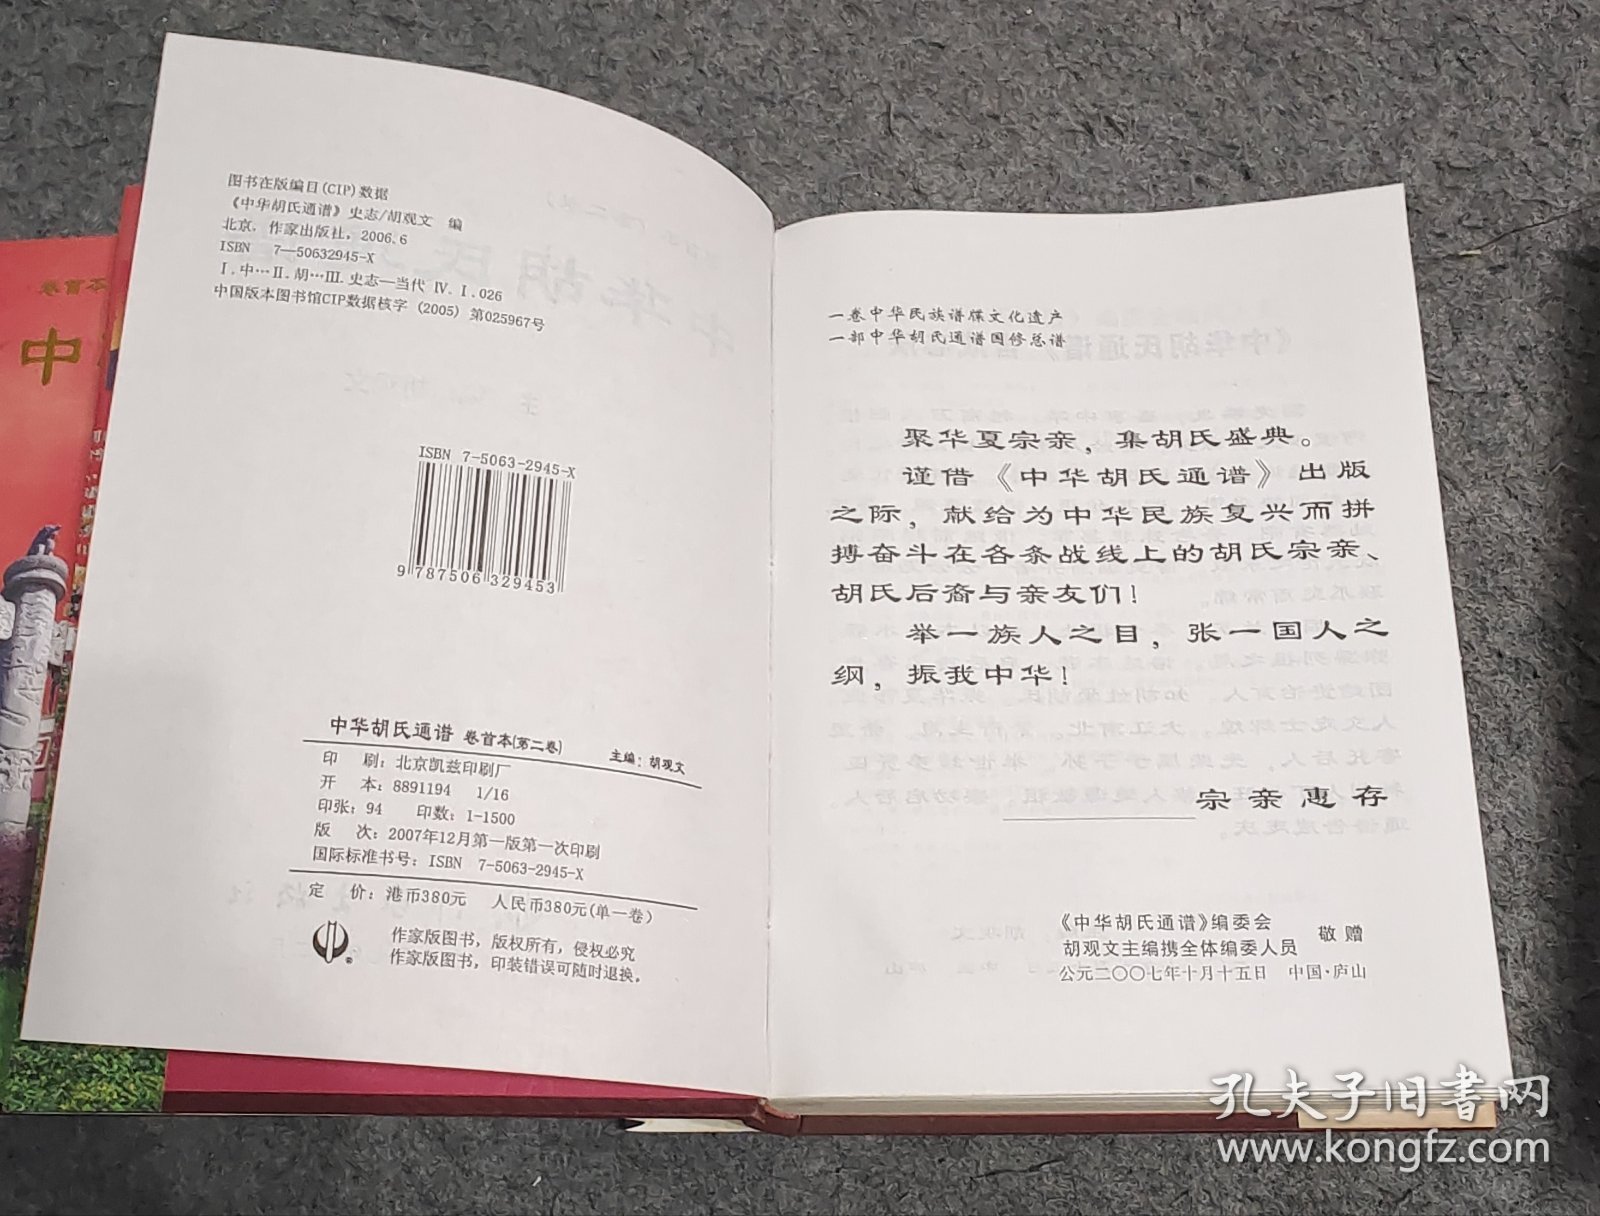 图书在版编目(CIP)数据
《中华胡氏通谱》史志/胡观文 编
北京,作家出版社,2006.6
ISBN 7—50632945-X
Ⅰ.中…Ⅱ.胡…Ⅲ.史志—当代 Ⅳ.Ⅰ.026
中国版本图书馆CIP数据核字 (2005) 第025967号
ISBN 7-5063-2945-X
9 787506 329453
中华胡氏通谱 卷首本(第二卷) 主编:胡观文
印 刷:北京凯兹印刷厂
开 本:8891194 1/16
印张:94 印数:1-1500
版 次:2007年12月第一版第一次印刷
国际标准书号:ISBN 7-5063-2945-X
定 价:港币380元 人民币380元(单一卷)
作家版图书,版权所有,侵权必究
作家版图书,印装错误可随时退换。
一卷中华民族谱牒文化遗产
一部中华胡氏通谱国修总谱
聚华夏宗亲,集胡氏盛典。
谨借《中华胡氏通谱》出版
之际,献给为中华民族复兴而拼
搏奋斗在各条战线上的胡氏宗亲、
胡氏后裔与亲友们!
举一族人之目,张一国人之
纲,振我中华!
宗亲惠存
《中华胡氏通谱》编委会
胡观文主编携全体编委人员 敬赠
公元二〇〇七年十月十五日 中国·庐山
卷首本
中
孔夫子旧书网
www.kongfz.com